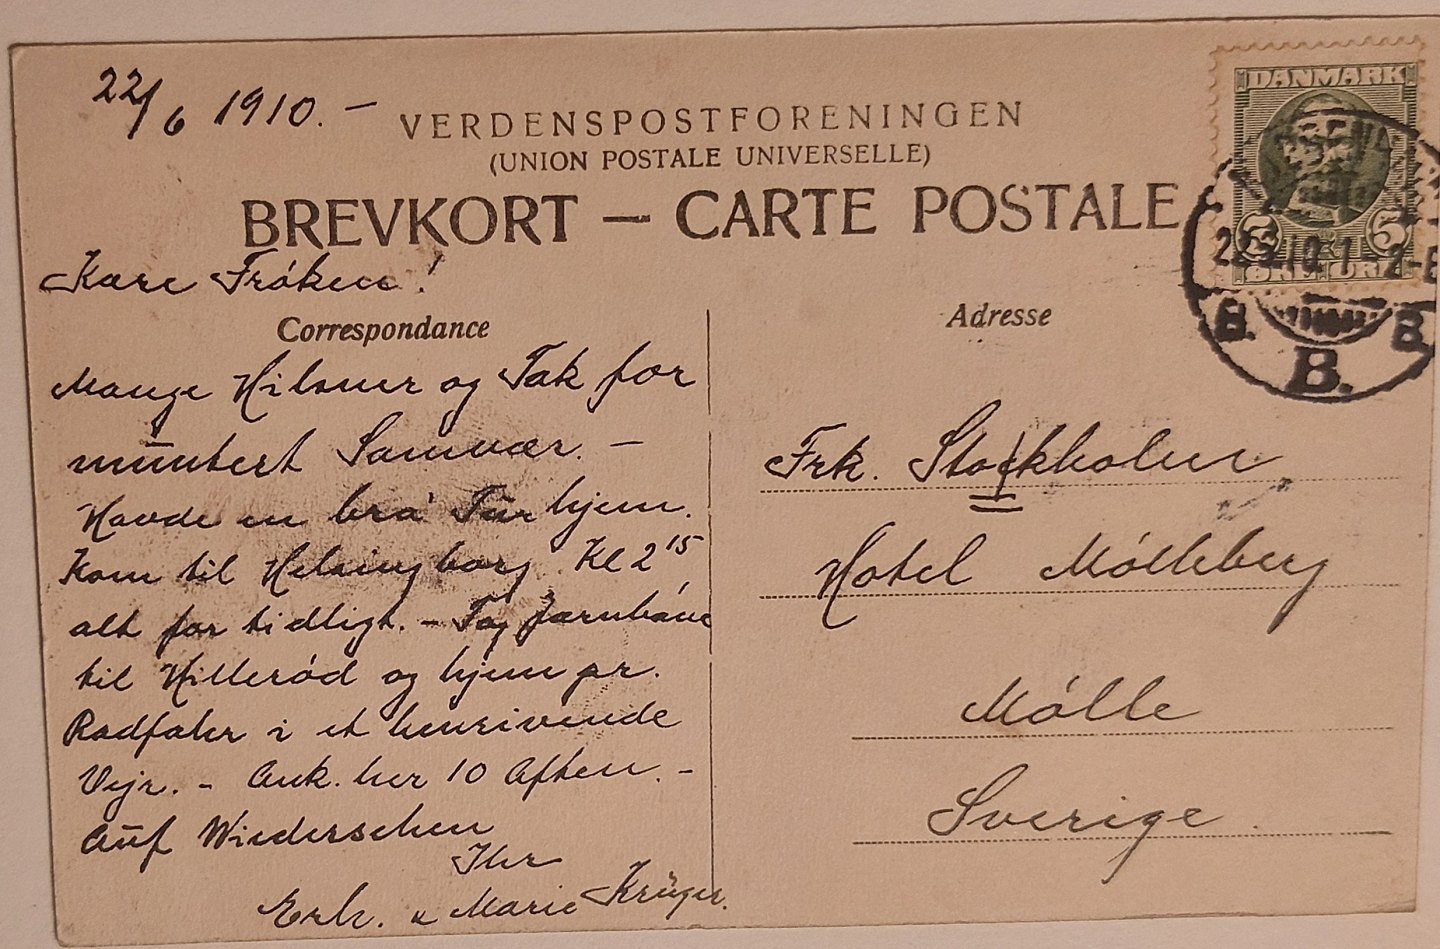 22/6 1910. –
VERDENSPOSTFORENINGEN
(UNION POSTALE UNIVERSELLE)
BREVKORT — CARTE POSTALE
DANMARK
5 5
ØRE ØRE
B. B.
B.
Kære Frøken!
Correspondance
Mange Hilsner og Tak for
muntert Samvær. –
Havde en bra Tur hjem.
Kom til Helsingborg Kl 2 15
alt for tidligt. – Tog Jærnbane
til Hillerød og hjem pr.
Radfahr i et henrivende
Vejr. – Ank. her 10 Aften. –
Auf Wiedersehen
Ihr
Erh. u Marie Krüger.
Adresse
Frk. Stockholm
Hotel Mølleberg
Mølle
Sverige.